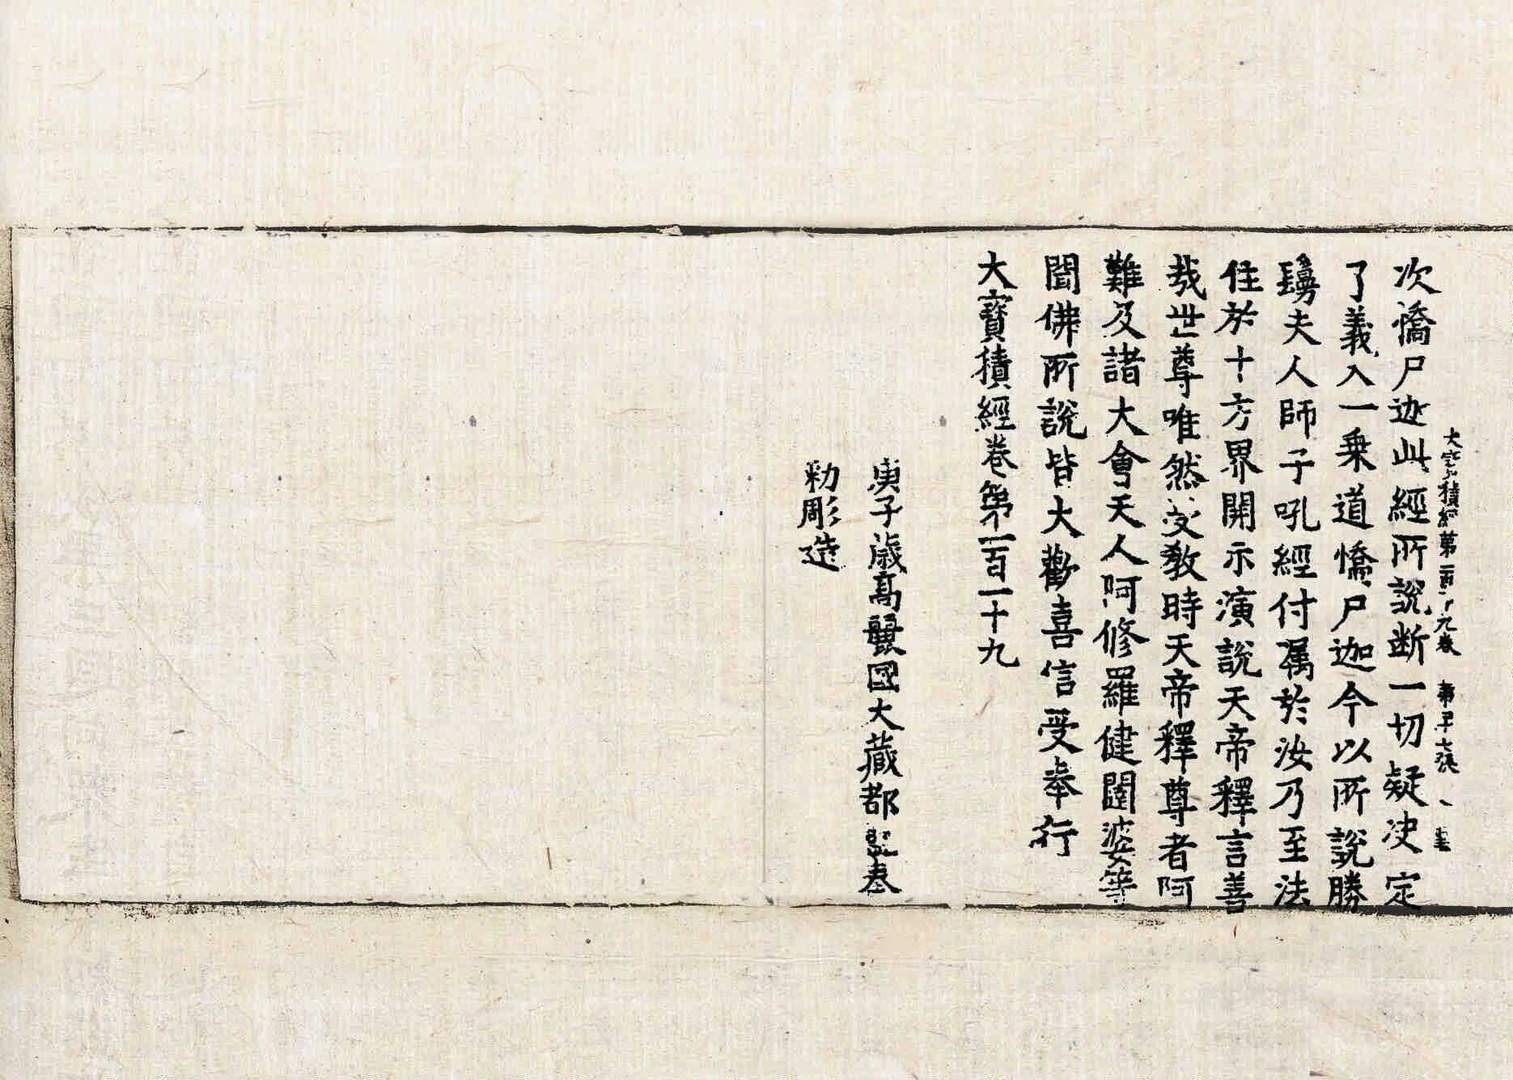 大寶積經第一百十九卷 第五十七張
次憍尸迦此經所說断一切疑决定
了義入一乗道憍尸迦今以所說勝
鬘夫人師子吼經付属於汝乃至法
住於十方界開示演說天帝釋言善
㢤世尊唯然受教時天帝釋尊者阿
難及諸大會天人阿修羅健闥婆等
聞佛所說皆大歡喜信受奉行
大寶積經卷第一百一十九
庚子歲高麗國大藏都監奉
勑彫造